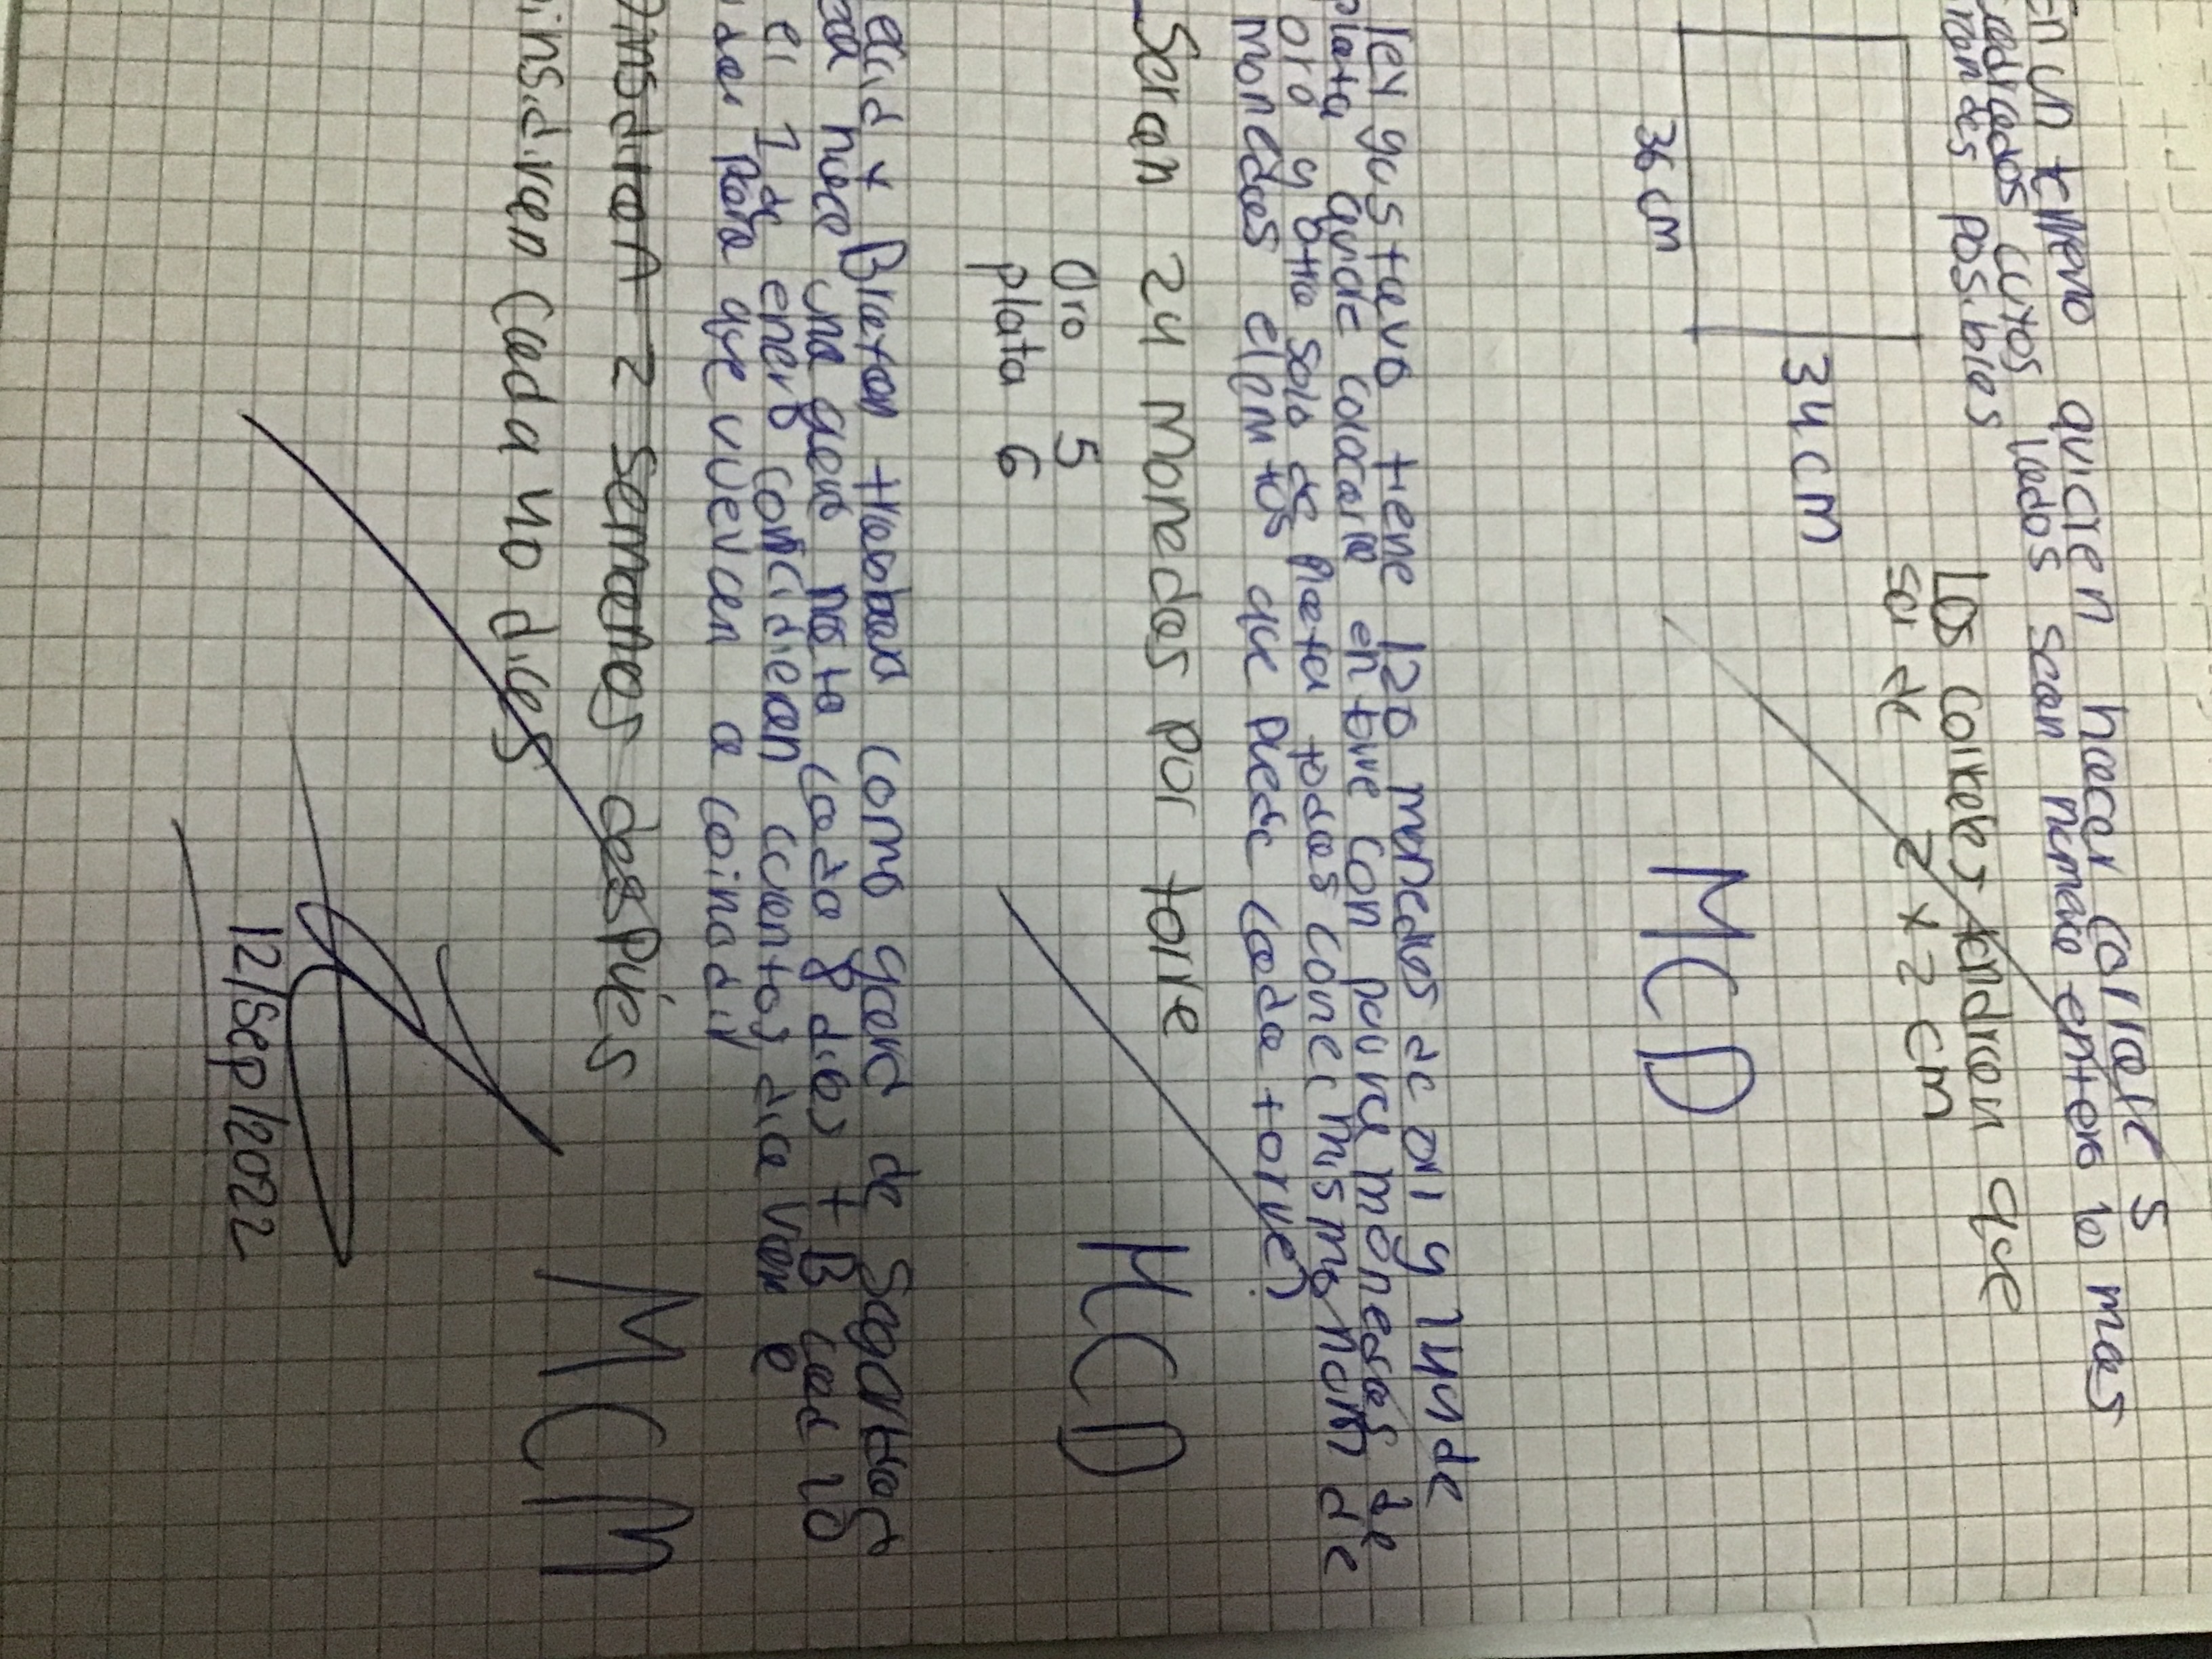 En un terreno quieren hacer corrale s
cuadrados cuyos lados sean numero entero lo mas
grandes posibles
Los corrales tendran que
ser de 2 x 2 cm
34 cm
36 cm
MCD
ley gustavo tiene 120 monedas de oro y 144 de
plata quiere colocarla en torre con pura monedas de
oro y otra solo de plata todas con el mismo num de
monedas el pm tos que puede cada torre?
Seran 24 monedas por torre
Oro 5
plata 6
MCD
Brayan trabaja como guard de Seguridad
hace una guard nocto cada 8 dias + B cad 10
el 1 de enero coincidiran cuentos dia van a
der para que vuevcan a coinadir
2 semanas después
insdiren cada 40 dices
MCM
12/sep/2022